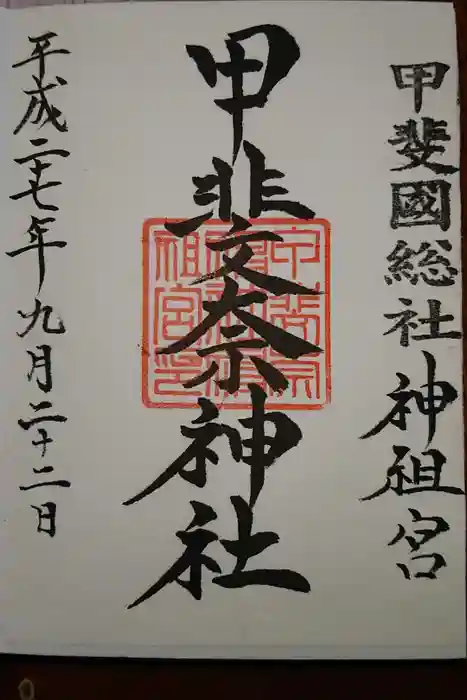 甲斐國総社神祖宮
甲斐奈神社
平成二十七年九月二十二日